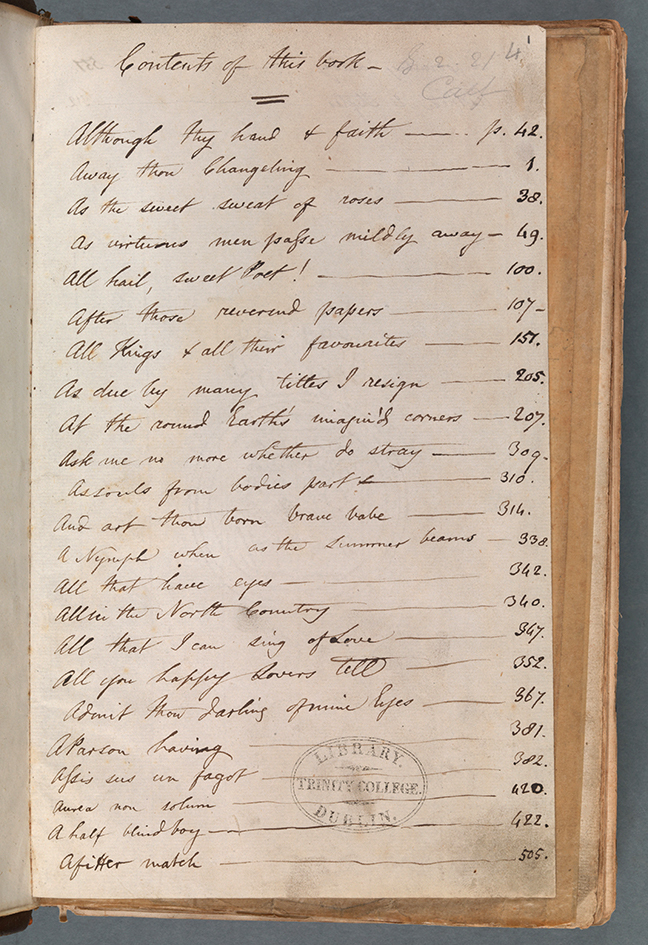 1
Contents of this book – G. 2. 21 4.
Although thy hand & faith — p. 42.
Away thou Changeling — 1.
As the sweet sweat of roses — 38.
As virtuous men passe mildly away — 49.
All hail, sweet Poet! — 100.
After those reverend papers — 107 –
All Kings & all their favourites — 151.
As due by many titles I resign — 205.
At the round Earth's imagin'd corners — 207.
Ask me no more whether do stray — 309.
As souls from bodies part — 310.
And art thou born brave babe — 314.
A Nymph when as the Summer beams — 338.
All that have eyes — 342.
All in the North Country — 340.
All that I can sing of Love — 347.
All you happy Lovers tell — 352.
Admit thou darling of mine Eyes — 367.
A Parson having — 381.
Assis sus un fagot — 382.
Aurea non solum — 420.
A half blind boy — 422.
A fitter match — 505.
LIBRARY.
TRINITY COLLEGE.
DUBLIN.